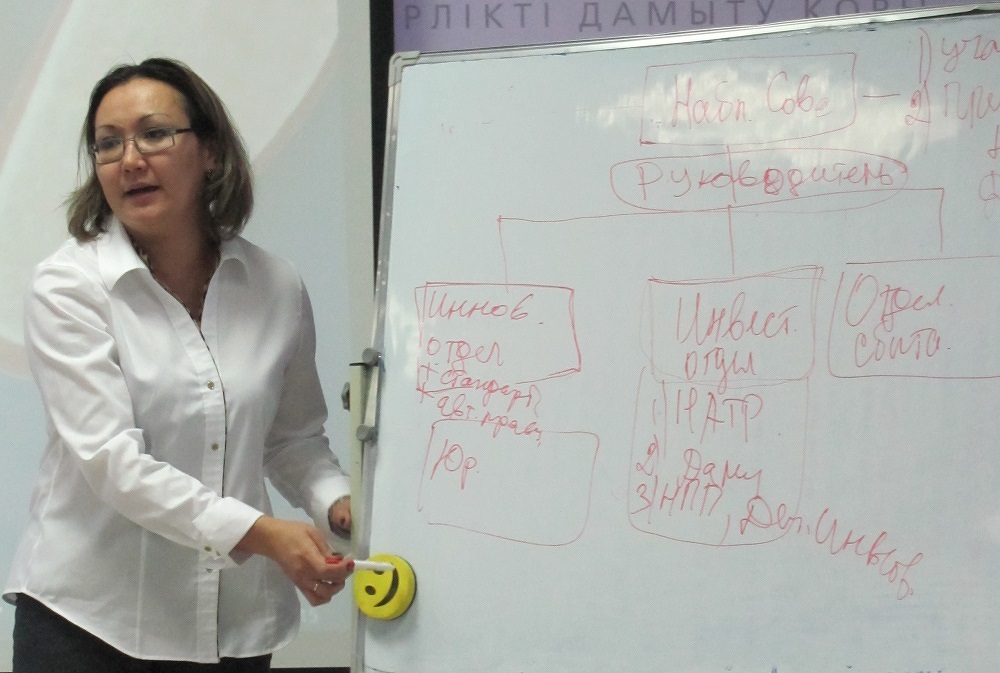 РЛІКТІ ДАМЫТУ КОРП
Набл. Сове
1) уча
2) При
Руководитель
Иннов.
отдел
Стандарт
авт. прав,
Юр.
Инвест.
отдел
1) НАТР
2) Даму
3) НПП, Деп. Инвестов.
Отдел.
сбыта.